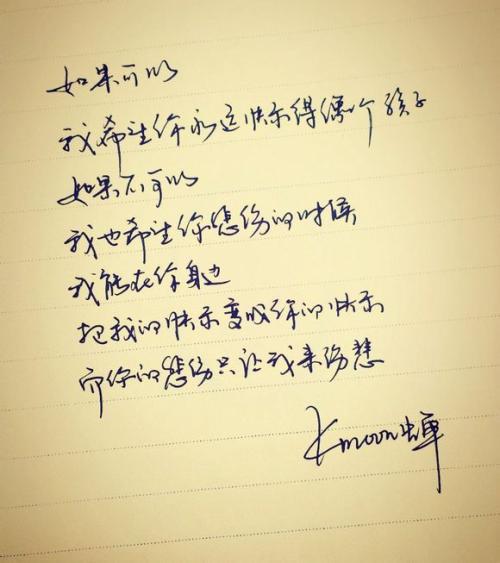 如果可以
我希望你永远快乐得像个孩子
如果不可以
我也希望你悲伤的时候
我能在你身边
把我的快乐变成你的快乐
而你的悲伤只让我来伤悲
kmoon蝉